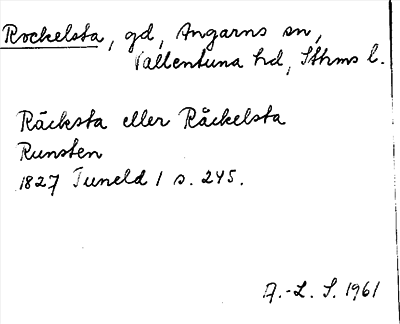 Rockelsta, gd, Angarns sn,
Vallentuna hd, Sthms l.
Räcksta eller Råckelsta
Runsten
1827 Tuneld 1 s. 245.
A.-L. S. 1961